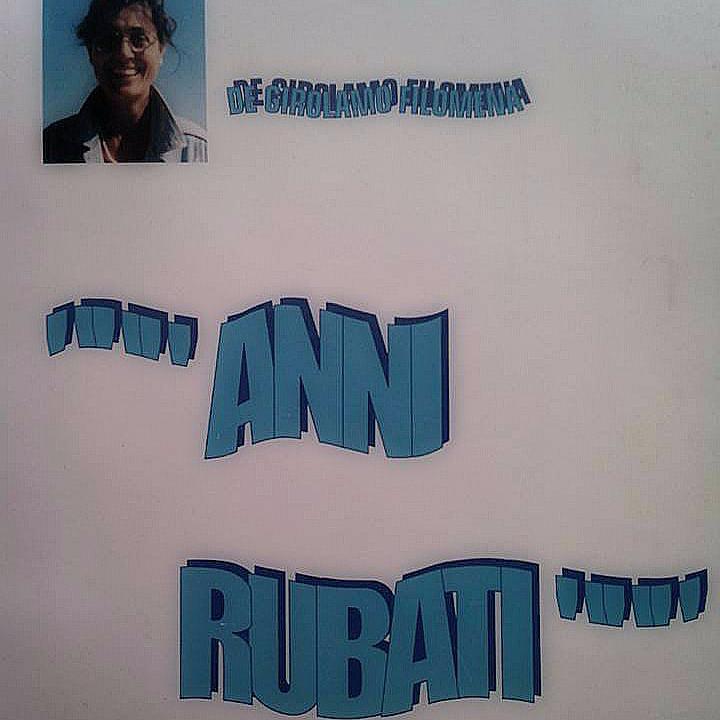 DE GIROLAMO FILOMENA
"" ANNI
RUBATI ""